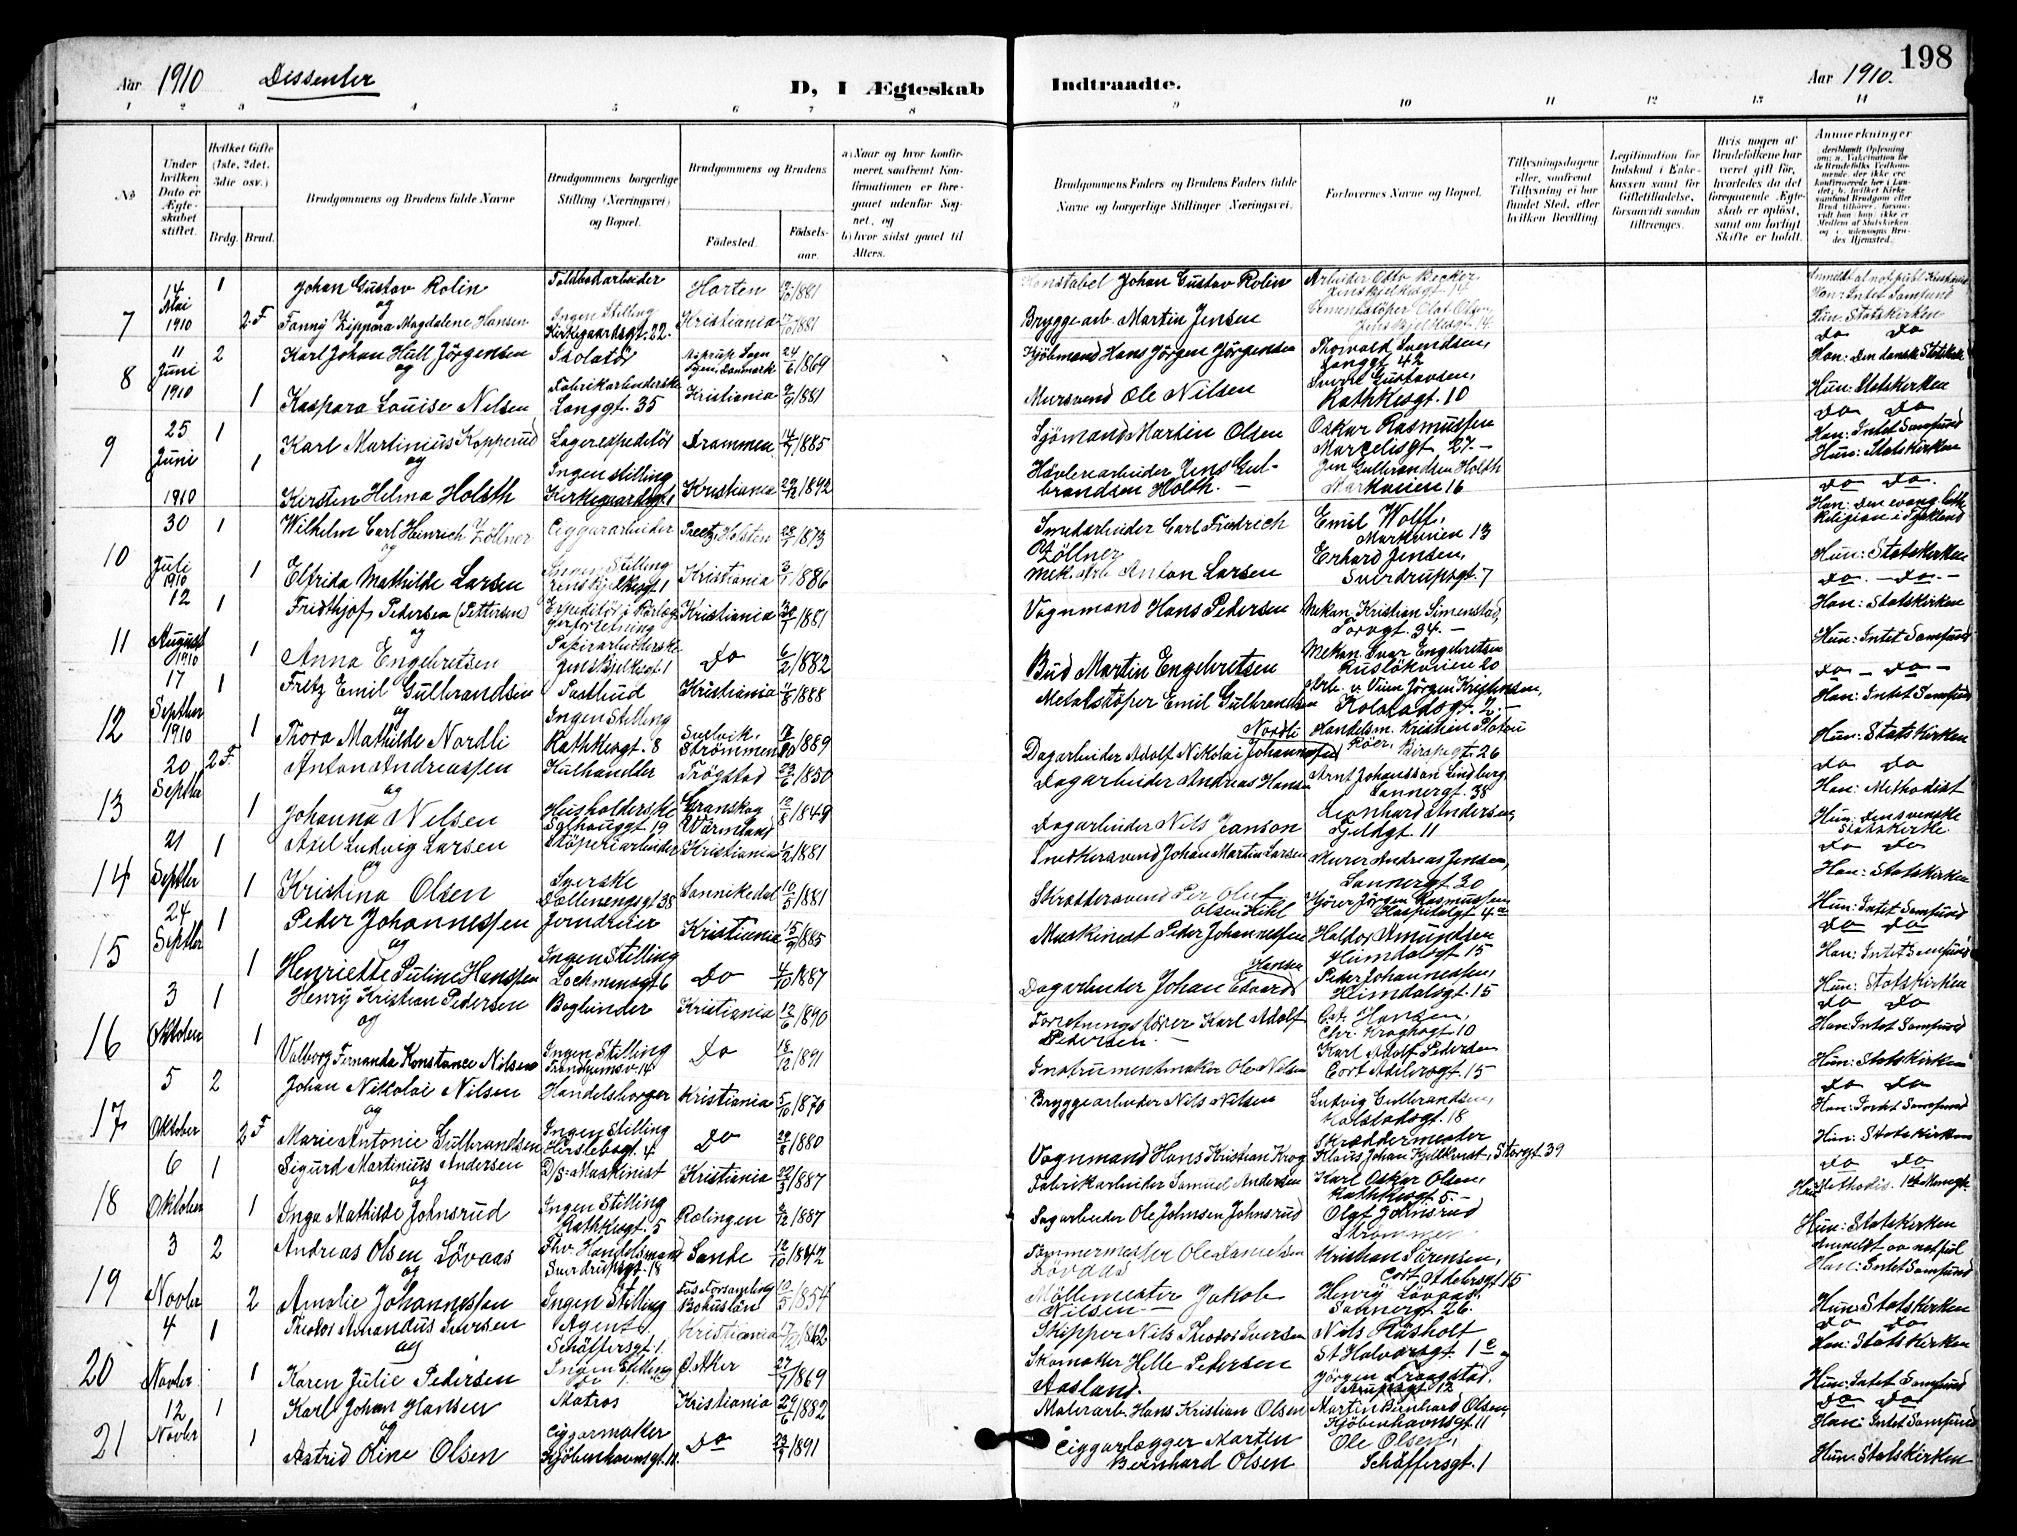 198
Aar 1910 Dissenter D, I Ægteskab Indtraadte. Aar 1910.
1 2 3 4 5 6 7 8 9 10 11 12 13 14
No
Under hvilken Dato er Ægteskabet stiftet.
Hvilket Gifte (1ste, 2det, 3die osv.)
Brdg. Brud.
Brudgommens og Brudens fulde Navne
Brudgommens borgerlige Stilling (Næringsvei) og Bopæl.
Brudgommens og Brudens
Fødested.
Fødselsaar.
a) Naar og hvor konfirmeret, saafremt Konfirmationen er foregaaet udenfor Sognet, og
b) hvor sidst gaaet til Alters.
Brudgommens Faders og Brudens Faders fulde Navne og borgerlige Stillinger (Næringsvei).
Forlovernes Navne og Bopæl.
Tillysningsdagene eller, saafremt Tillysning ei har fundet Sted, efter hvilken Bevilling
Legitimation for Indskud i Enkekassen samt for Giftetilladelse, forsaavidt saadan tiltrænges.
Hvis nogen af Brudefolkene har været gift før, hvorledes da det foregaaende Ægteskab er opløst, samt om lovligt Skifte er holdt.
Anmerkninger
7 14 Mai 1910 1 Johan Gustav Rolin Toldbodarbeider Horten 1881 Konstabel Johan Gustav Rolin Arbeider Otto Becker Jens Bjelkesgt 14 Han: Intet Samfund
og
2. F Fanny Zippora Magdalene Hansen Ingen Stilling Kirkegaardsgt. 22 Kristiania 1881 Bryggearb. Martin Jensen Hun: Statskirken
do do
8 11 Juni 1910 2 Karl Johan Hull Jörgensen Isolatör 24/6 1869 Kjöbmand Hans Jörgen Jörgensen Thorvald Svendsen, Langgt 42 Han: Den danske Statskirke
og
1 Kaspara Louise Nilsen Fabrikarbeiderske Langgt. 35 Kristiania 2/9 1881 Mursvend Ole Nilsen Sverre Gustavsen, Rathkesgt. 10 Hun: Statskirken
do do
9 25 Juni 1910 1 Karl Martinius Kopperud Lagerexpeditör Drammen 1885 Sjömand Martin Olsen Oskar Rasmussen Marcelisgt 27 Han: Intet Samfund
og
1 Kirsten Helma Holsth Ingen Stilling Kirkegaardsgt 1 Kristiania 29/12 1892 Hövleriarbeider Jens Gulbrandsen Holth. Jen Gulbrandsen Holth Markveien 16 Hun: Statskirken
do do.
10 30 Juli 1910 1 Wilhelm Carl Heinrich Zöllner Ciggararbeider Preetz, Holsten 1873 Smedarbeider Carl Fredrich Zöllner Emil Wolff, Markveien 13 Han: Den evang. luth. Religion i Tyskland
og
1 Elfrida Mathilde Larsen Ingen Stilling Jens Bjelkesgt 1 Kristiania 1886 Mek. Arb. Anton Larsen Erhard Jensen, Sverdrupsgt. 7 Hun: Statskirken
do - do -
11 12 August 1910 1 Fridthjof Pedersen (Pettersen) Kristiania 1881 Vognmand Hans Pedersen Mekan. Kristian Simenstad, Torvgt. 34. Han: Statskirken
og
1 Anna Engebretsen Papirarbeiderske Jens Bjelkesgt. 1 Do 6/2 1882 Bud Martin Engebretsen Mekan. Ivar Engebretsen Ruslökveien 20 Hun: Intet Samfund
do - do -
12 17 Septber 1910 1 Fretz Emil Gulbrandsen Postbud Kristiania 1888 Metalstöper Emil Gulbrandsen Jörgen Kristensen, Kolstadsgt. 2. Han: Intet Samfund
og
1 Thora Mathilde Nordli Ingen Stilling Rathkesgt. 8 Svelvik, Strömmen 1889 Dagarbeider Adolf Nikolai Johannesen Nordli Handelsm. Kristian Platou Röer, Bispegt. 26 Hun: Statskirken
do do
13 20 Septbr 2 F. Anton Andreassen Kulhandler Trögstad 1850 Dagarbeider Andreas Hansen Arnt Johansson Lindberg Sannergt 38 Han: Methodist
og
1 Johanna Nilsen Husholderske Selhausgt 19 Granskog Wärmland 1849 Dagarbeider Nils Janson Leonhard Andersen, Geldgt 11 Hun: den svenske Statskirke
do do
14 21 Septber 1 Axel Ludvig Larsen Stöperiarbeider Kristiania 1881 Snedkersvend Johan Martin Larsen Murer Andreas Jensen, Sannergt 30 Han: Statskirken
og
1 Kristina Olsen Syerske Dælenenggt 38 Sannikedal 10/5 1881 Skræddersvend Per Oluf Olsen Kihl Jörgen Rasmussen Hospitalsgt 4 Hun: Intet Samfund
do do
15 24 Septber 1 Peder Johannessen Jerndreier Kristiania 15/9 1885 Maskinist Peder Johannessen Haldor Amundsen Heimdalsgt 15 Han: Intet Samfund
og
1 Henriette Puline Hanssen Ingen Stilling Lockmansgt 6 Do 4/10 1887 Dagarbeider Johan Edvard Hansen Peder Johannessen, Heimdalsgt. 15 Hun: Statskirken
do do
16 3 Oktober 1 Henry Kristian Pedersen Bogbinder Kristiania 12/6 1890 Forretningsförer Karl Adolf Pedersen. Hansen, Chr. Kroghsgt 10 Han: Intet Samfund
og
1 Valborg Fernanda Konstance Nilsen Ingen Stilling Trondhjemsv. 14 Do 18/12 1891 Instrumentmaker Ole Nilsen Karl Adolf Pedersen Cort Adelersgt. 15 Hun: Statskirken
do do
17 5 Oktober 2 Johan Nikolai Nilsen Handelsborger Kristiania 5/10 1870 Bryggearbeider Nils Nilsen Ludvig Gulbrandsen, Kolstadsgt. 18 Han: Intet Samfund
og
2 F Marie Antonie Gulbrandsen Ingen Stilling Herslebsgt. 4 Do 1880 Vognmand Hans Kristian Krog Skræddermester Klaus Johan Kjelkvist, Storgt 39 Hun: Statskirken
do do
18 6 Oktober 1 Sigurd Martinius Andersen D/S: Maskinist Kristiania 1887 Fabrikarbeider Samuel Andersen Karl Oskar Olsen, Rathkesgt 5. Han: Methodis.
og
1 Inga Mathilde Johnsrud Ingen Stilling Rathkesgt. 5 Rælingen 1887 Sagarbeider Ole Johnsen Johnsrud Olaf Johnsrud Strömmen Hun: Statskirken
19 3 Novber 2 Andreas Olsen Lövaas Fhv. Handelsmand Sverdrupsgt. 18 Sande 12/10 1842 Tömmermester Ole Danielsen Lövaas Kristian Sörensen, Cort Adelersgt 15 Han: Intet Samfund
og
2 Amalie Johannessen Ingen Stilling Foss Forsamling Bohuslän 10/5 1854 Möllemester Jakob Nilsen Henry Lövaas, Sannergt. 26. Hun: Statskirken
do do
20 4 Novber 1 Theodor Amandus Iversen Agent Schäffersgt. 1. Kristiania 1862 Skipper Nils Theodor Iversen Nils Räsholt St Halvardsgt. 1 c Han: Statskirken
og
1 Karen Julie Pedersen Ingen Stilling Ö. Aker 27/7 1869 Skomaker Helle Pedersen Aasland. Jörgen Draagstad, 12 Hun: Intet Samfund
do do
21 12 Novber 1 Karl Johan Hansen Matros Kristiania 29/6 1882 Malerarb. Hans Kristian Olsen Martin Bernhard Olsen, Kjöbenhavnsgt 11 Han: Intet Samfund
og
1 Astrid Oline Olsen Ciggarmaker Kjöbenhavnsgt. 11. Do 1891 Ciggarlægger Martin Bernhard Olsen Ole Olsen, Schäffersgt. 1 Hun: Statskirken